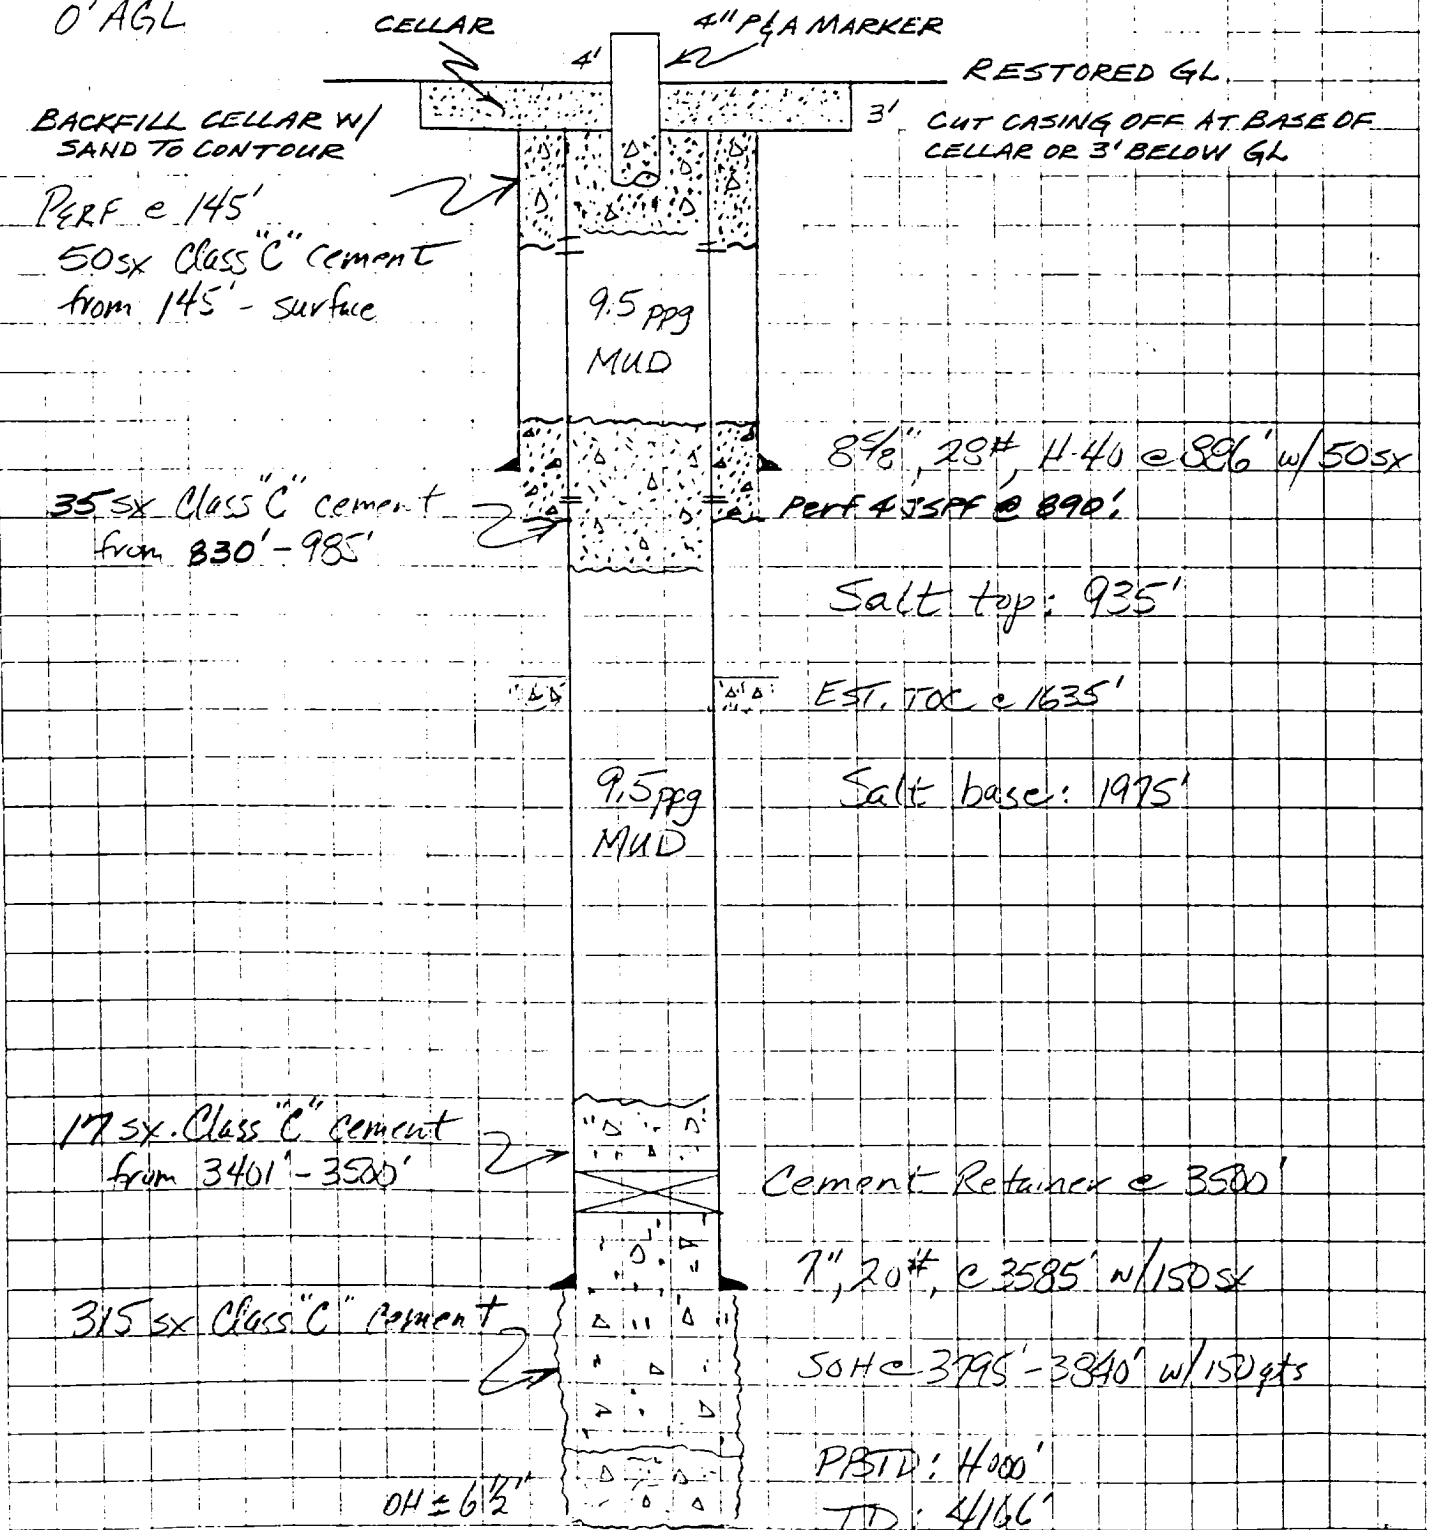 0' AGL
CELLAR
4" P&A MARKER
4'
RESTORED GL
BACKFILL CELLAR W/
SAND TO CONTOUR
3'
CUT CASING OFF AT BASE OF
CELLAR OR 3' BELOW GL
PERF @ 145'
50sx Class "C" cement
from 145' - surface
9.5 ppg
MUD
8 5/8", 28#, H-40 @ 886' w/ 50sx
Perf 4 JSPF @ 890'
35 sx Class "C" cement
from 830' - 985'
Salt top: 935'
EST. TOC @ 1635'
9.5 ppg
MUD
Salt base: 1975'
17 sx. Class "C" cement
from 3401' - 3500'
Cement Retainer @ 3500'
7", 20#, @ 3585' w/150 sx
315 sx Class "C" cement
SOH @ 3795' - 3840' w/ 150 qts
PBTD: 4000'
OH ± 6 1/2"
TD: 4166'